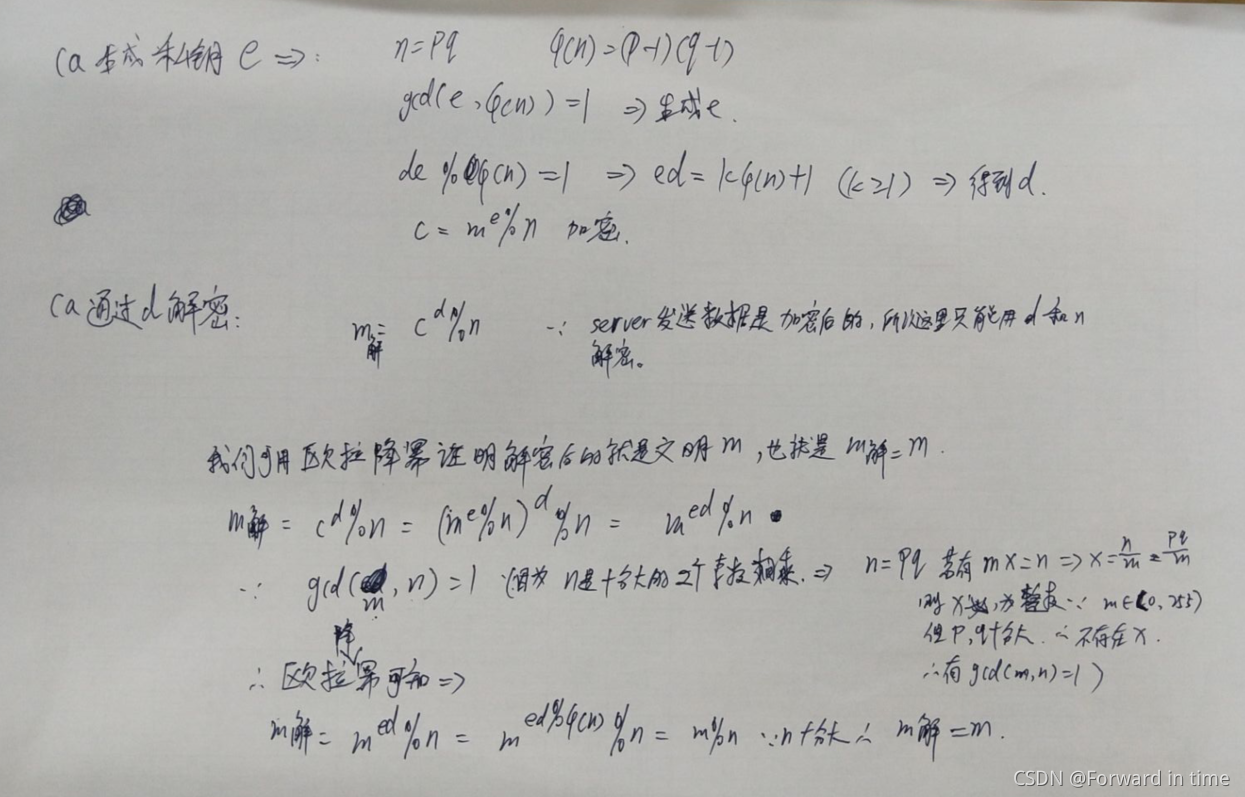 Ca 生成 私钥 e ⇒: n=pq φ(n)=(p-1)(q-1)
gcd(e,φ(n))=1 ⇒生成e.
de %φ(n)=1 ⇒ ed=kφ(n)+1 (k≥1) ⇒ 得到d.
c = m^e%n 加密.
Ca 通过d解密: m解= c^d%n ∵ server发送数据是加密后的,所以这里只能用d和n
解密。
我们可用欧拉降幂证明解密后的就是文明m,也就是m解=m.
m解 = c^d%n = (m^e%n)^d%n = m^ed%n
∵ gcd(m,n)=1 (因为n是十分大的2个素数相乘.⇒ n=pq 若有mx=n ⇒x=n/m=pq/m
则x为整数∵ m∈(0,255)
但p,q十分大.∴不存在x.
∴有gcd(m,n)=1)
∴欧拉降幂可知⇒
m解= m^ed%n = m^ed%φ(n)%n = m%n ∵n十分大∴ m解=m.
CSDN @Forward in time